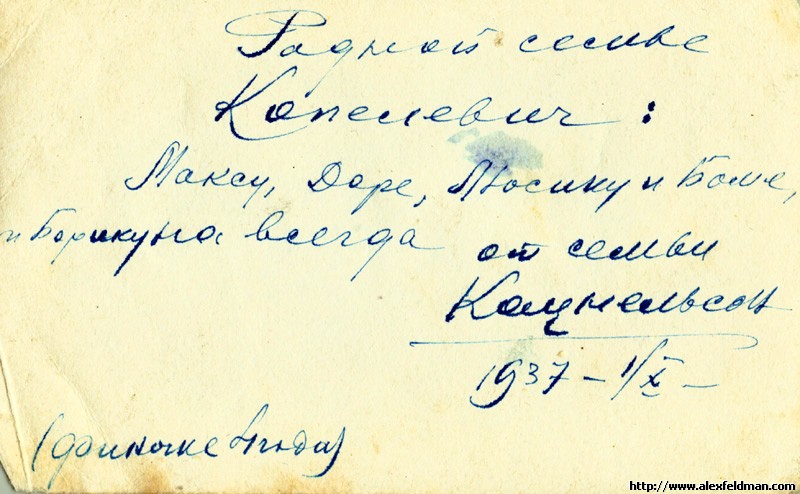 Родной семье
Копелевич:
Максу, Доре, Люсику и Боме,
и Борику на всегда от семьи
Кацнельсон
1937 – 1/X –
http://www.alexfeldman.com